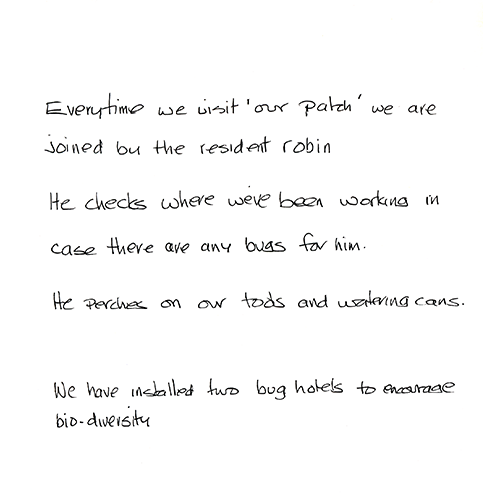 Everytime we visit 'our patch' we are
joined by the resident robin
He checks where we've been working in
case there are any bugs for him.
He perches on our tools and watering cans.
We have installed two bug hotels to encourage
bio-diversity